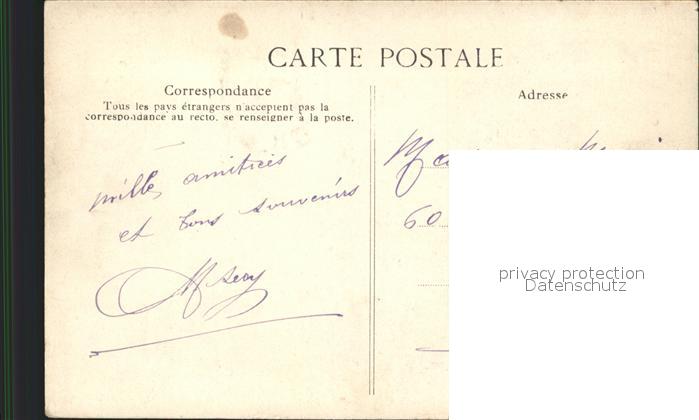 CARTE POSTALE
Correspondance
Tous les pays étrangers n'acceptent pas la
correspondance au recto, se renseigner à la poste.
Adresse
mille amitiés
et bons souvenirs
60
privacy protection
Datenschutz